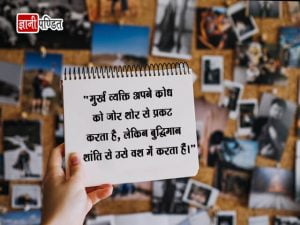 ज्ञानी पण्डित
"मुर्ख व्यक्ति अपने क्रोध
को जोर शोर से प्रकट
करता है, लेकिन बुद्धिमान
शांति से उसे वश में करता हैं।"